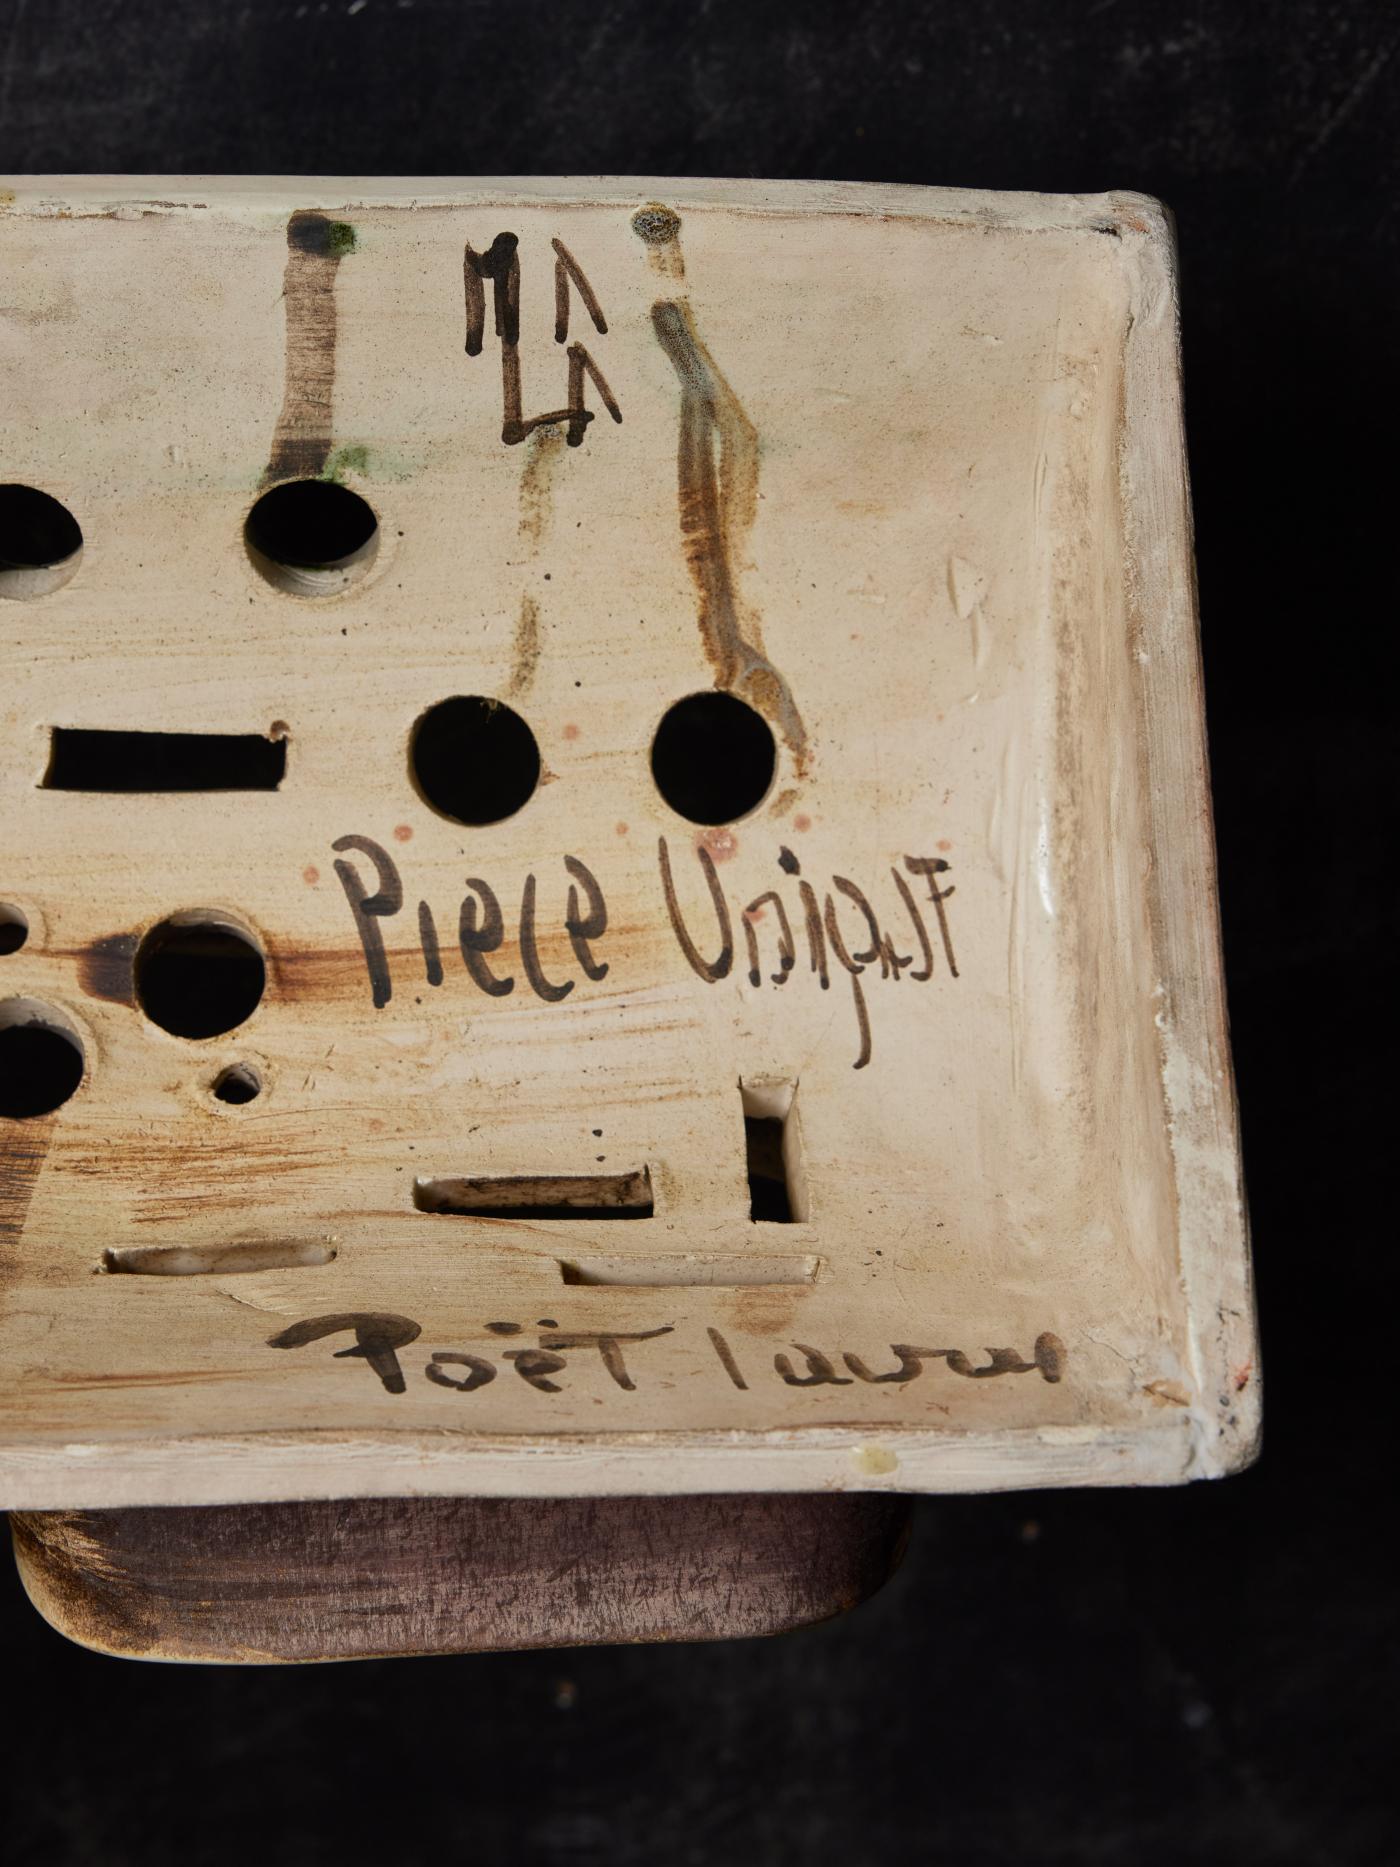 Piece Unique
Poët Laval